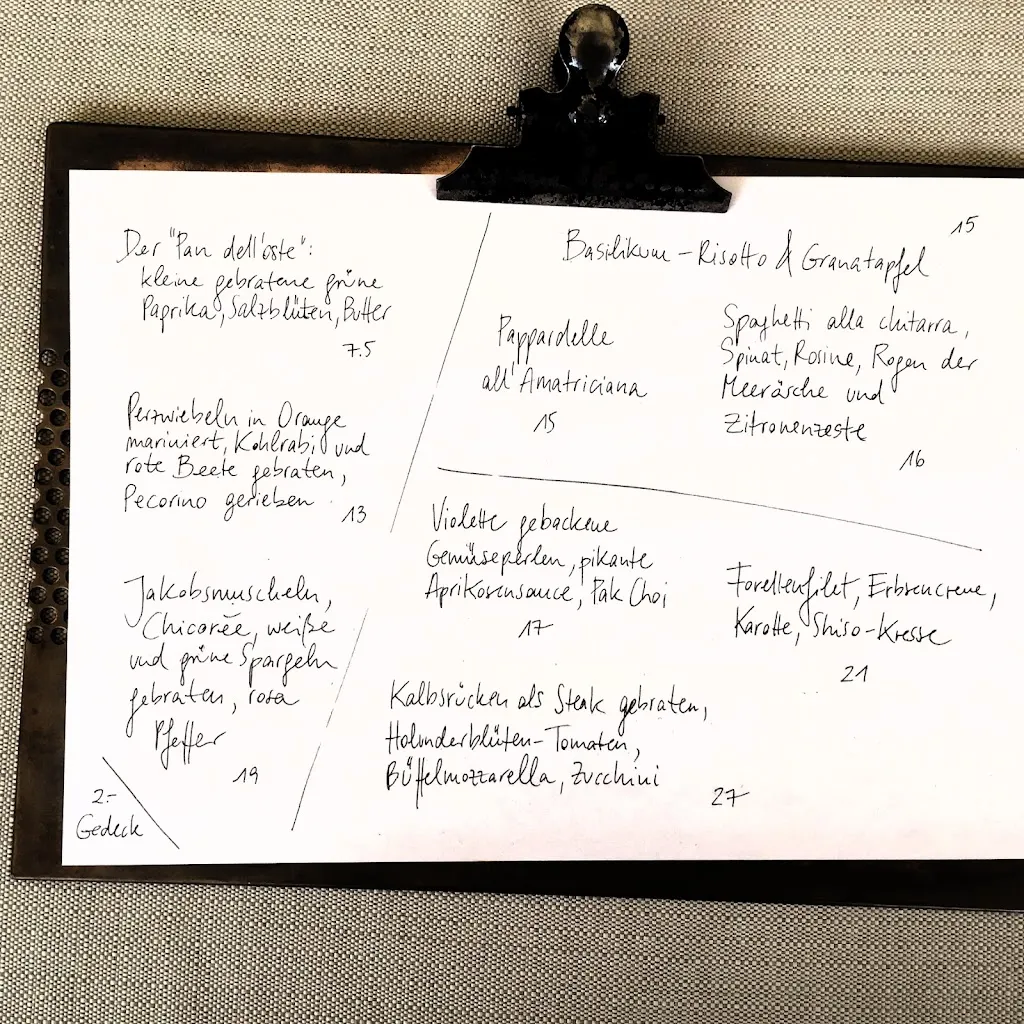 Der "Pan dell'oste":
kleine gebratene grüne
Paprika, Salzblüten, Butter
7.5
Perzwiebeln in Orange
mariniert, Kohlrabi und
rote Beete gebraten,
Pecorino gerieben
13
Jakobsmuscheln,
Chicorée, weiße
und grüne Spargeln
gebraten, rosa
Pfeffer
19
2.-
Gedeck
15
Basilikum-Risotto & Granatapfel
Pappardelle
all'Amatriciana
15
Spaghetti alla chitarra,
Spinat, Rosine, Rogen der
Meeräsche und
Zitronenzeste
16
Violette gebackene
Gemüseperlen, pikante
Aprikosensauce, Pak Choi
17
Forellenfilet, Erbsencreme,
Karotte, Shiso-Kresse
21
Kalbsrücken als Steak gebraten,
Holunderblüten-Tomaten,
Büffelmozzarella, Zucchini
27